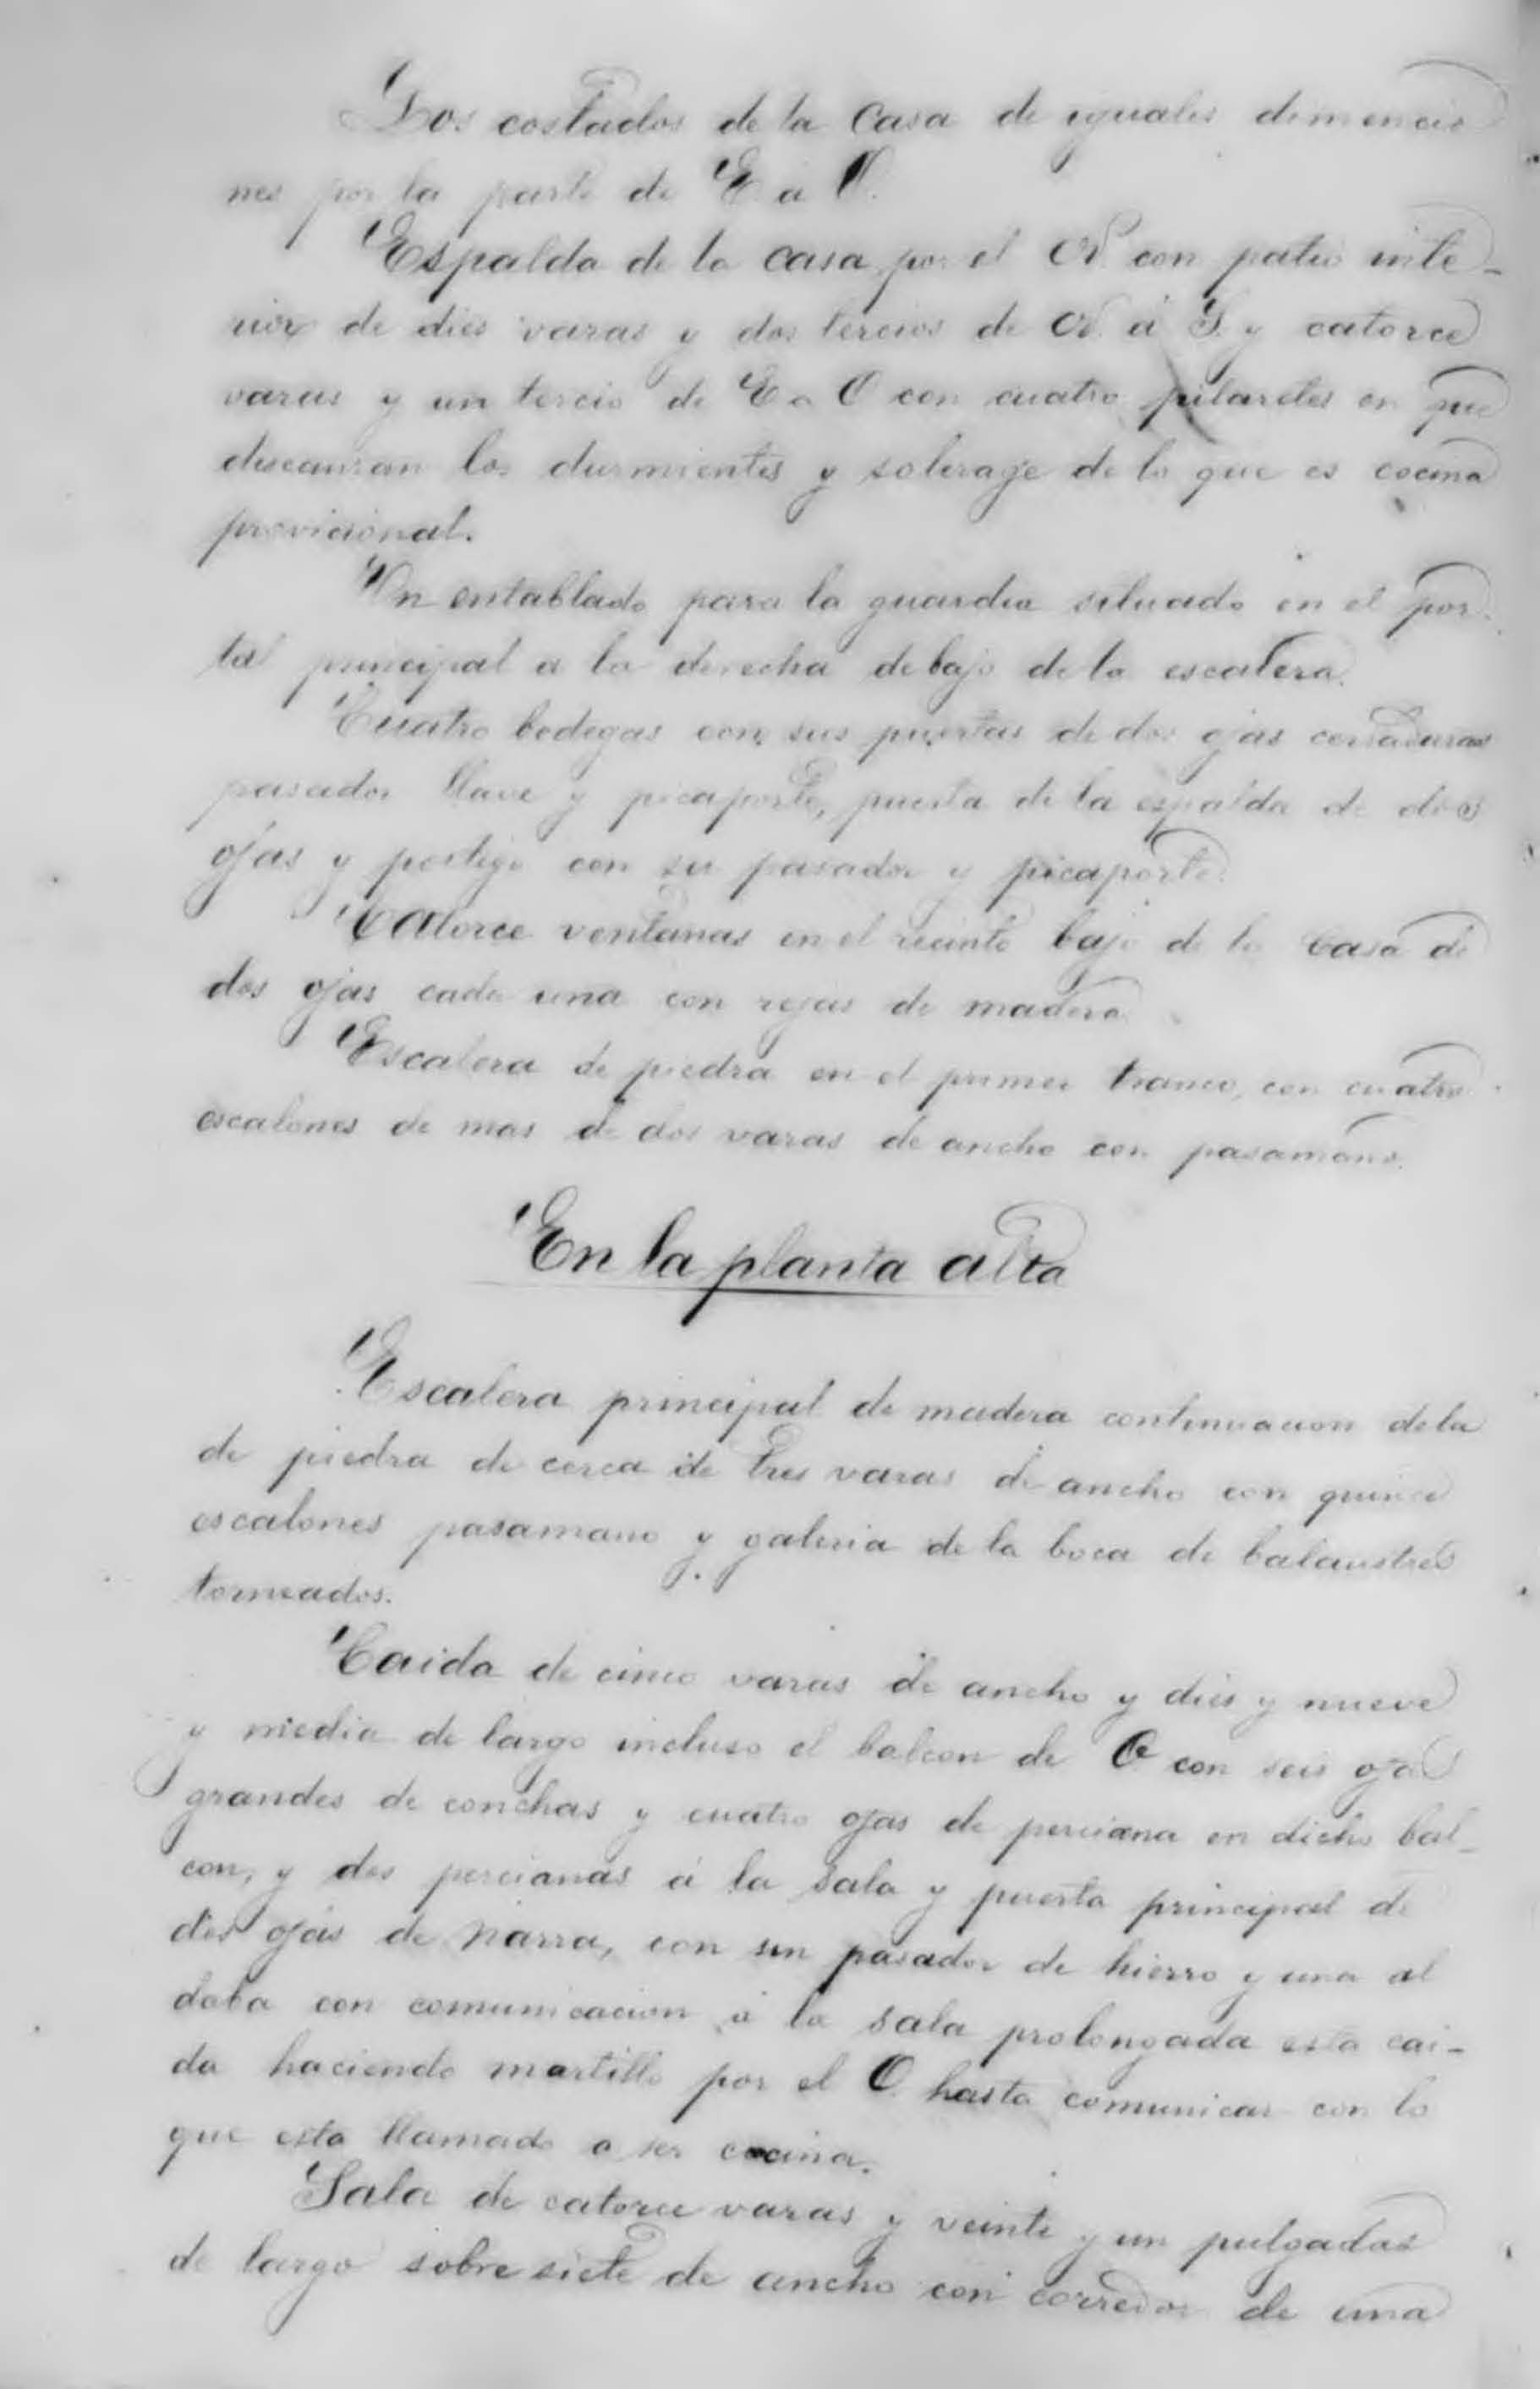 Dos costados de la Casa de iguales dimencio
nes por la parte de E. a O.
Espalda de la casa por el N. con patio inte-
rior de dies varas y dos tercios de N. á S. y catorce
varas y un tercio de E a O con cuatro pilaretes en que
descansan los durmientes y solerage de lo que es cocina
provicional.
Un entablado para la guardia situado en el por-
tal principal a la derecha debajo de la escalera.
Cuatro bodegas con sus puertas de dos ojas cerraduras
pasador llave y picaporte, puerta de la espalda de dos
ojas y postigo con su pasador y picaporte.
Catorce ventanas en el recinto bajo de la Casa de
dos ojas cada una con rejas de madera.
Escalera de piedra en el primer tramo, con cuatro
escalones de mas de dos varas de ancho con pasamano.
En la planta alta
Escalera principal de madera continuacion de la
de piedra de cerca de tres varas de ancho con quince
escalones pasamano y galeria de la boca de balaustres
torneados.
Caida de cinco varas de ancho y dies y nueve
y media de largo incluso el balcon de O con seis ojas
grandes de conchas y cuatro ojas de perciana en dicho bal-
con, y dos percianas á la sala y puerta principal de
dos ojas de narra, con un pasador de hierro y una al
daba con comunicacion á la sala prolongada esta cai-
da haciendo martillo por el O. hasta comunicar con lo
que esta llamado a ser cocina.
Sala de catorce varas y veinte y un pulgadas
de largo sobre siete de ancho con corredor de una